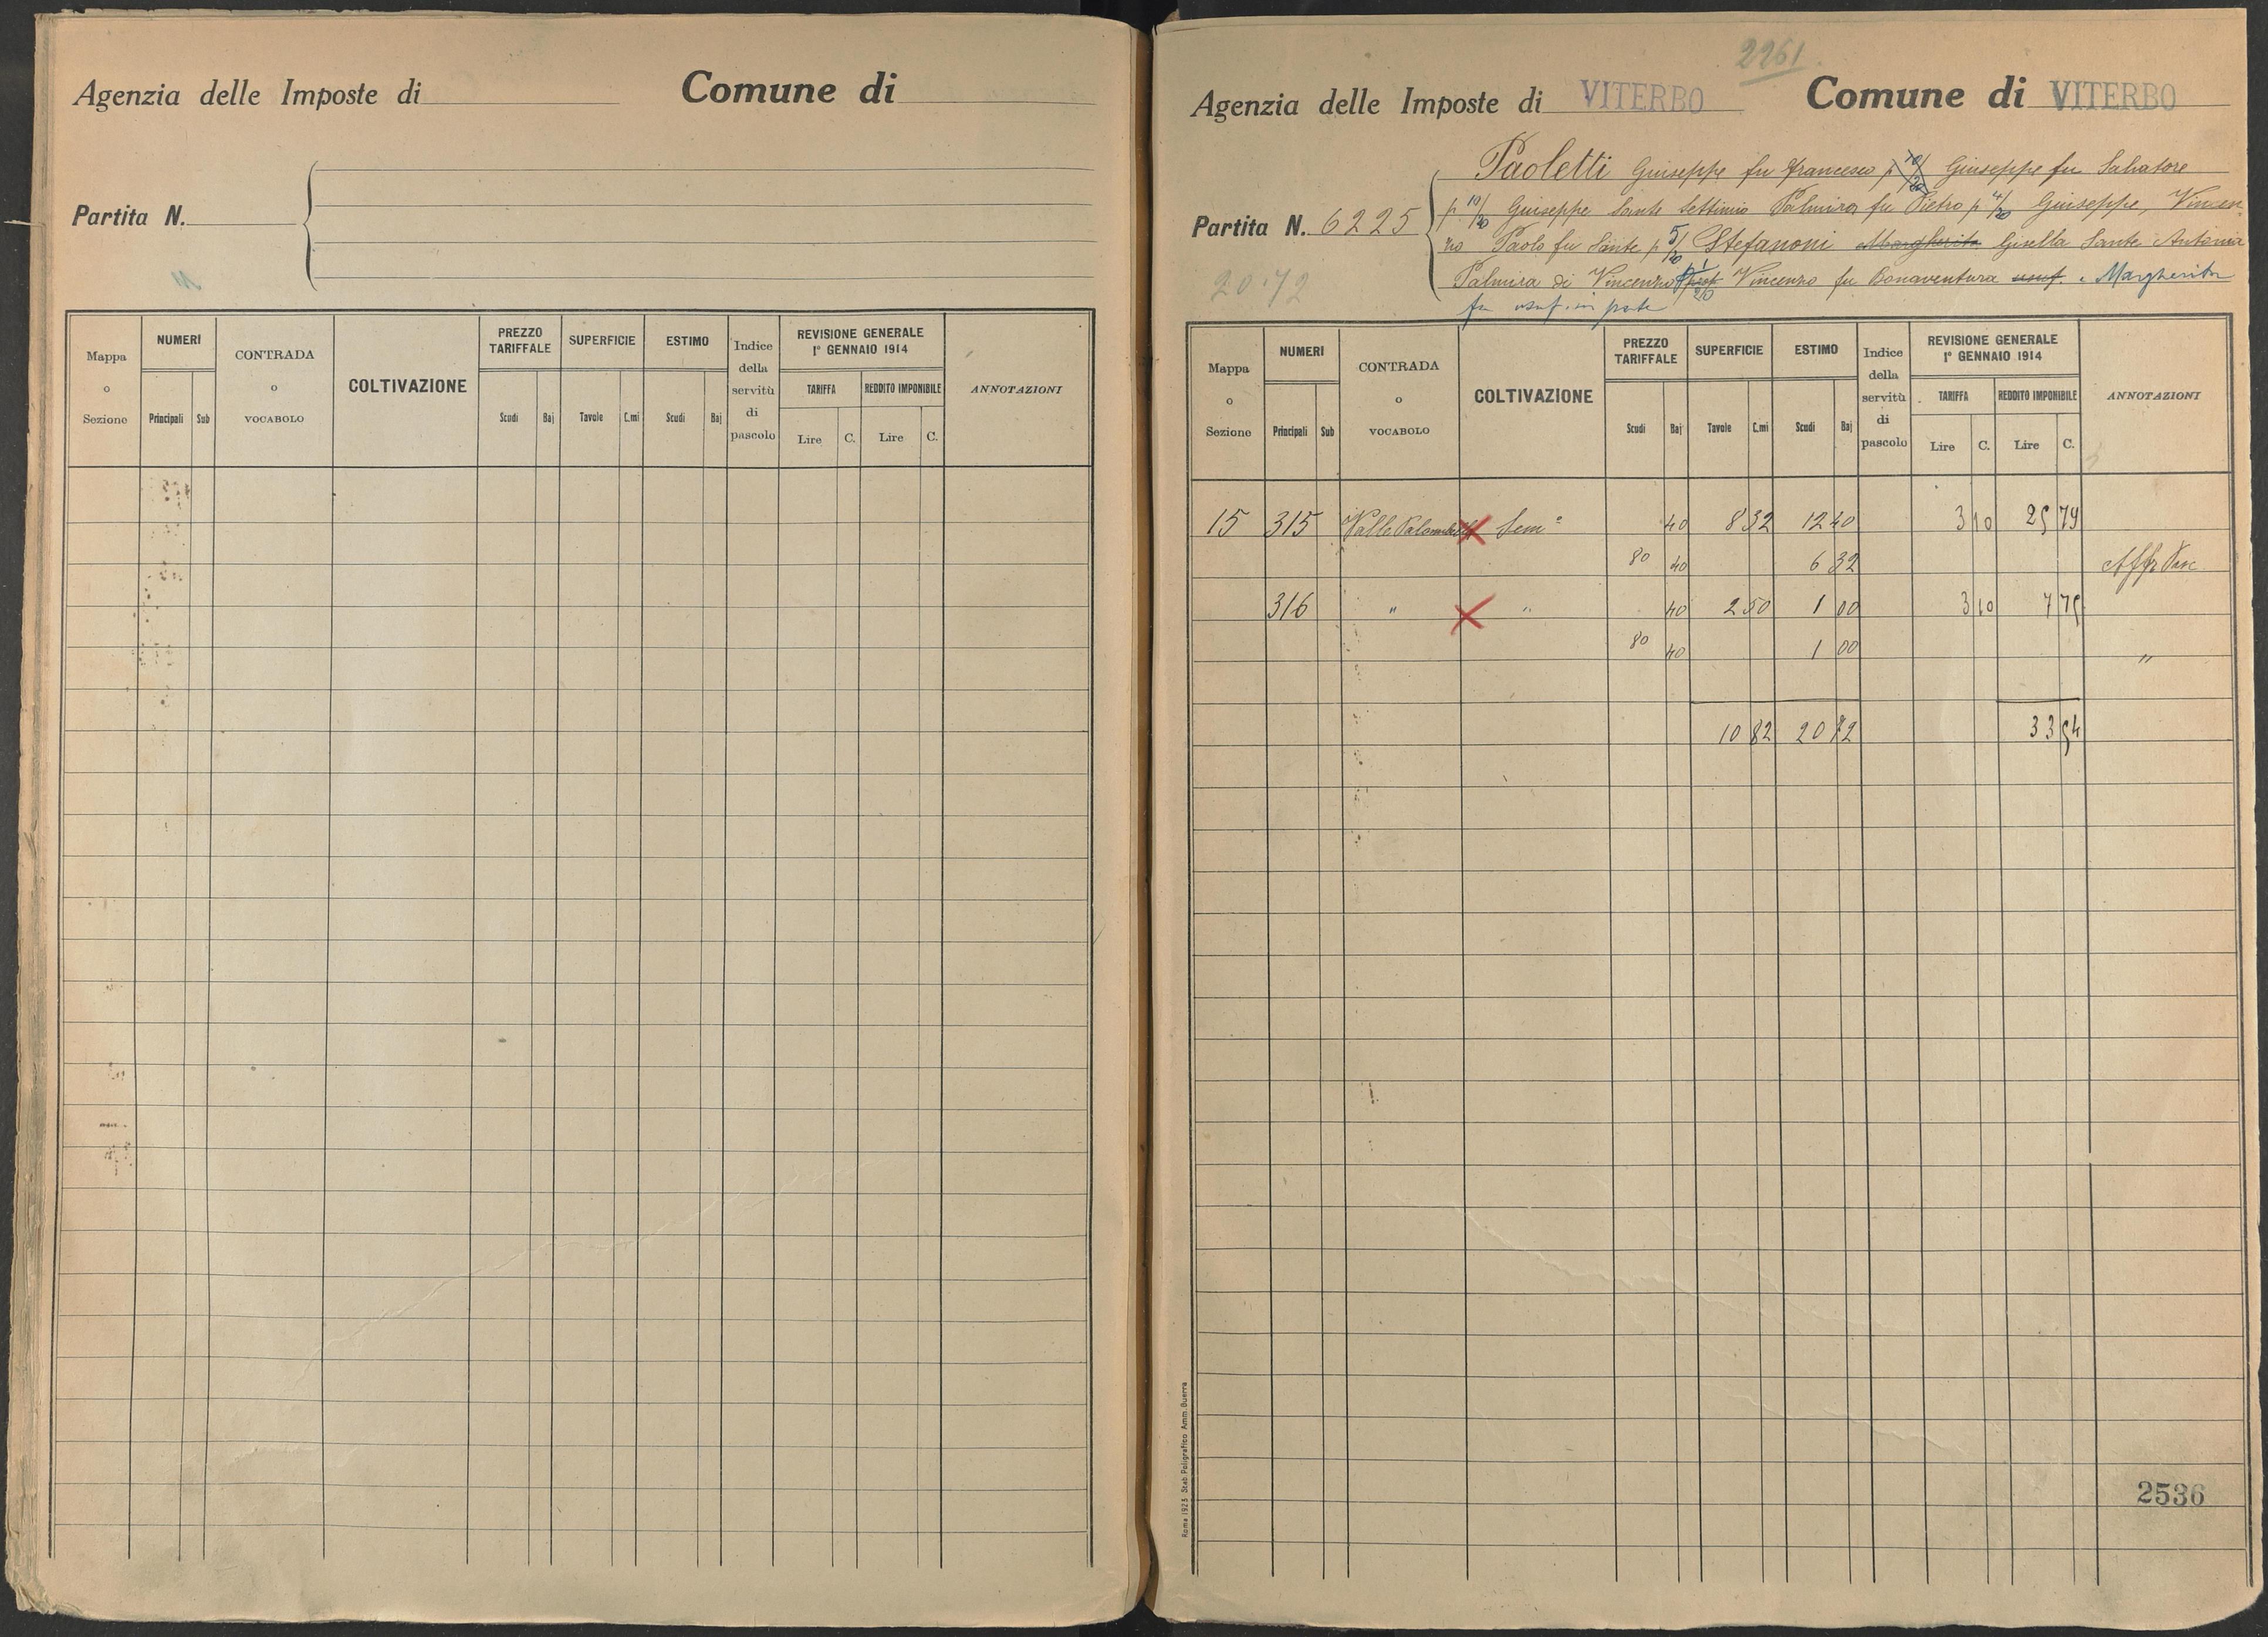 Agenzia delle Imposte di
Comune di
Partita N.
Mappa o Sezione
NUMERI
Principali
Sub
CONTRADA o VOCABOLO
COLTIVAZIONE
PREZZO TARIFFALE
Scudi
Baj
SUPERFICIE
Tavole
C.mi
ESTIMO
Scudi
Baj
Indice della servitù di pascolo
REVISIONE GENERALE
1° GENNAIO 1914
TARIFFA
Lire
C.
REDDITO IMPONIBILE
Lire
C.
ANNOTAZIONI
2261
Agenzia delle Imposte di VITERBO
Comune di VITERBO
Partita N. 6225
20.72
Paoletti Giuseppe fu Francesco p 10/20 Giuseppe fu Salvatore
p. 10/20 Giuseppe Sante Settimio Palmira fu Pietro p 4/20 Giuseppe, Vincen
zo Paolo fu Sante p 5/20 Stefanoni Margherita Gisella Sante Antonia
Palmira di Vincenzo Vincenzo fu Bonaventura usuf. e Margherita
fu usuf. in parte
Mappa o Sezione
NUMERI
Principali
Sub
CONTRADA o VOCABOLO
COLTIVAZIONE
PREZZO TARIFFALE
Scudi
Baj
SUPERFICIE
Tavole
C.mi
ESTIMO
Scudi
Baj
Indice della servitù di pascolo
REVISIONE GENERALE
1° GENNAIO 1914
TARIFFA
Lire
C.
REDDITO IMPONIBILE
Lire
C.
ANNOTAZIONI
15 315 Valle Sem° 40 8 32 12 40 3 10 25 79
80 40 6 32 Affr Pasc
316 " " 40 2 50 1 00 3 10 7 75
80 40 1 00 "
10 82 20 72 33 54
2536
Roma 1923 Stab. Poligrafico Amm. Guerra